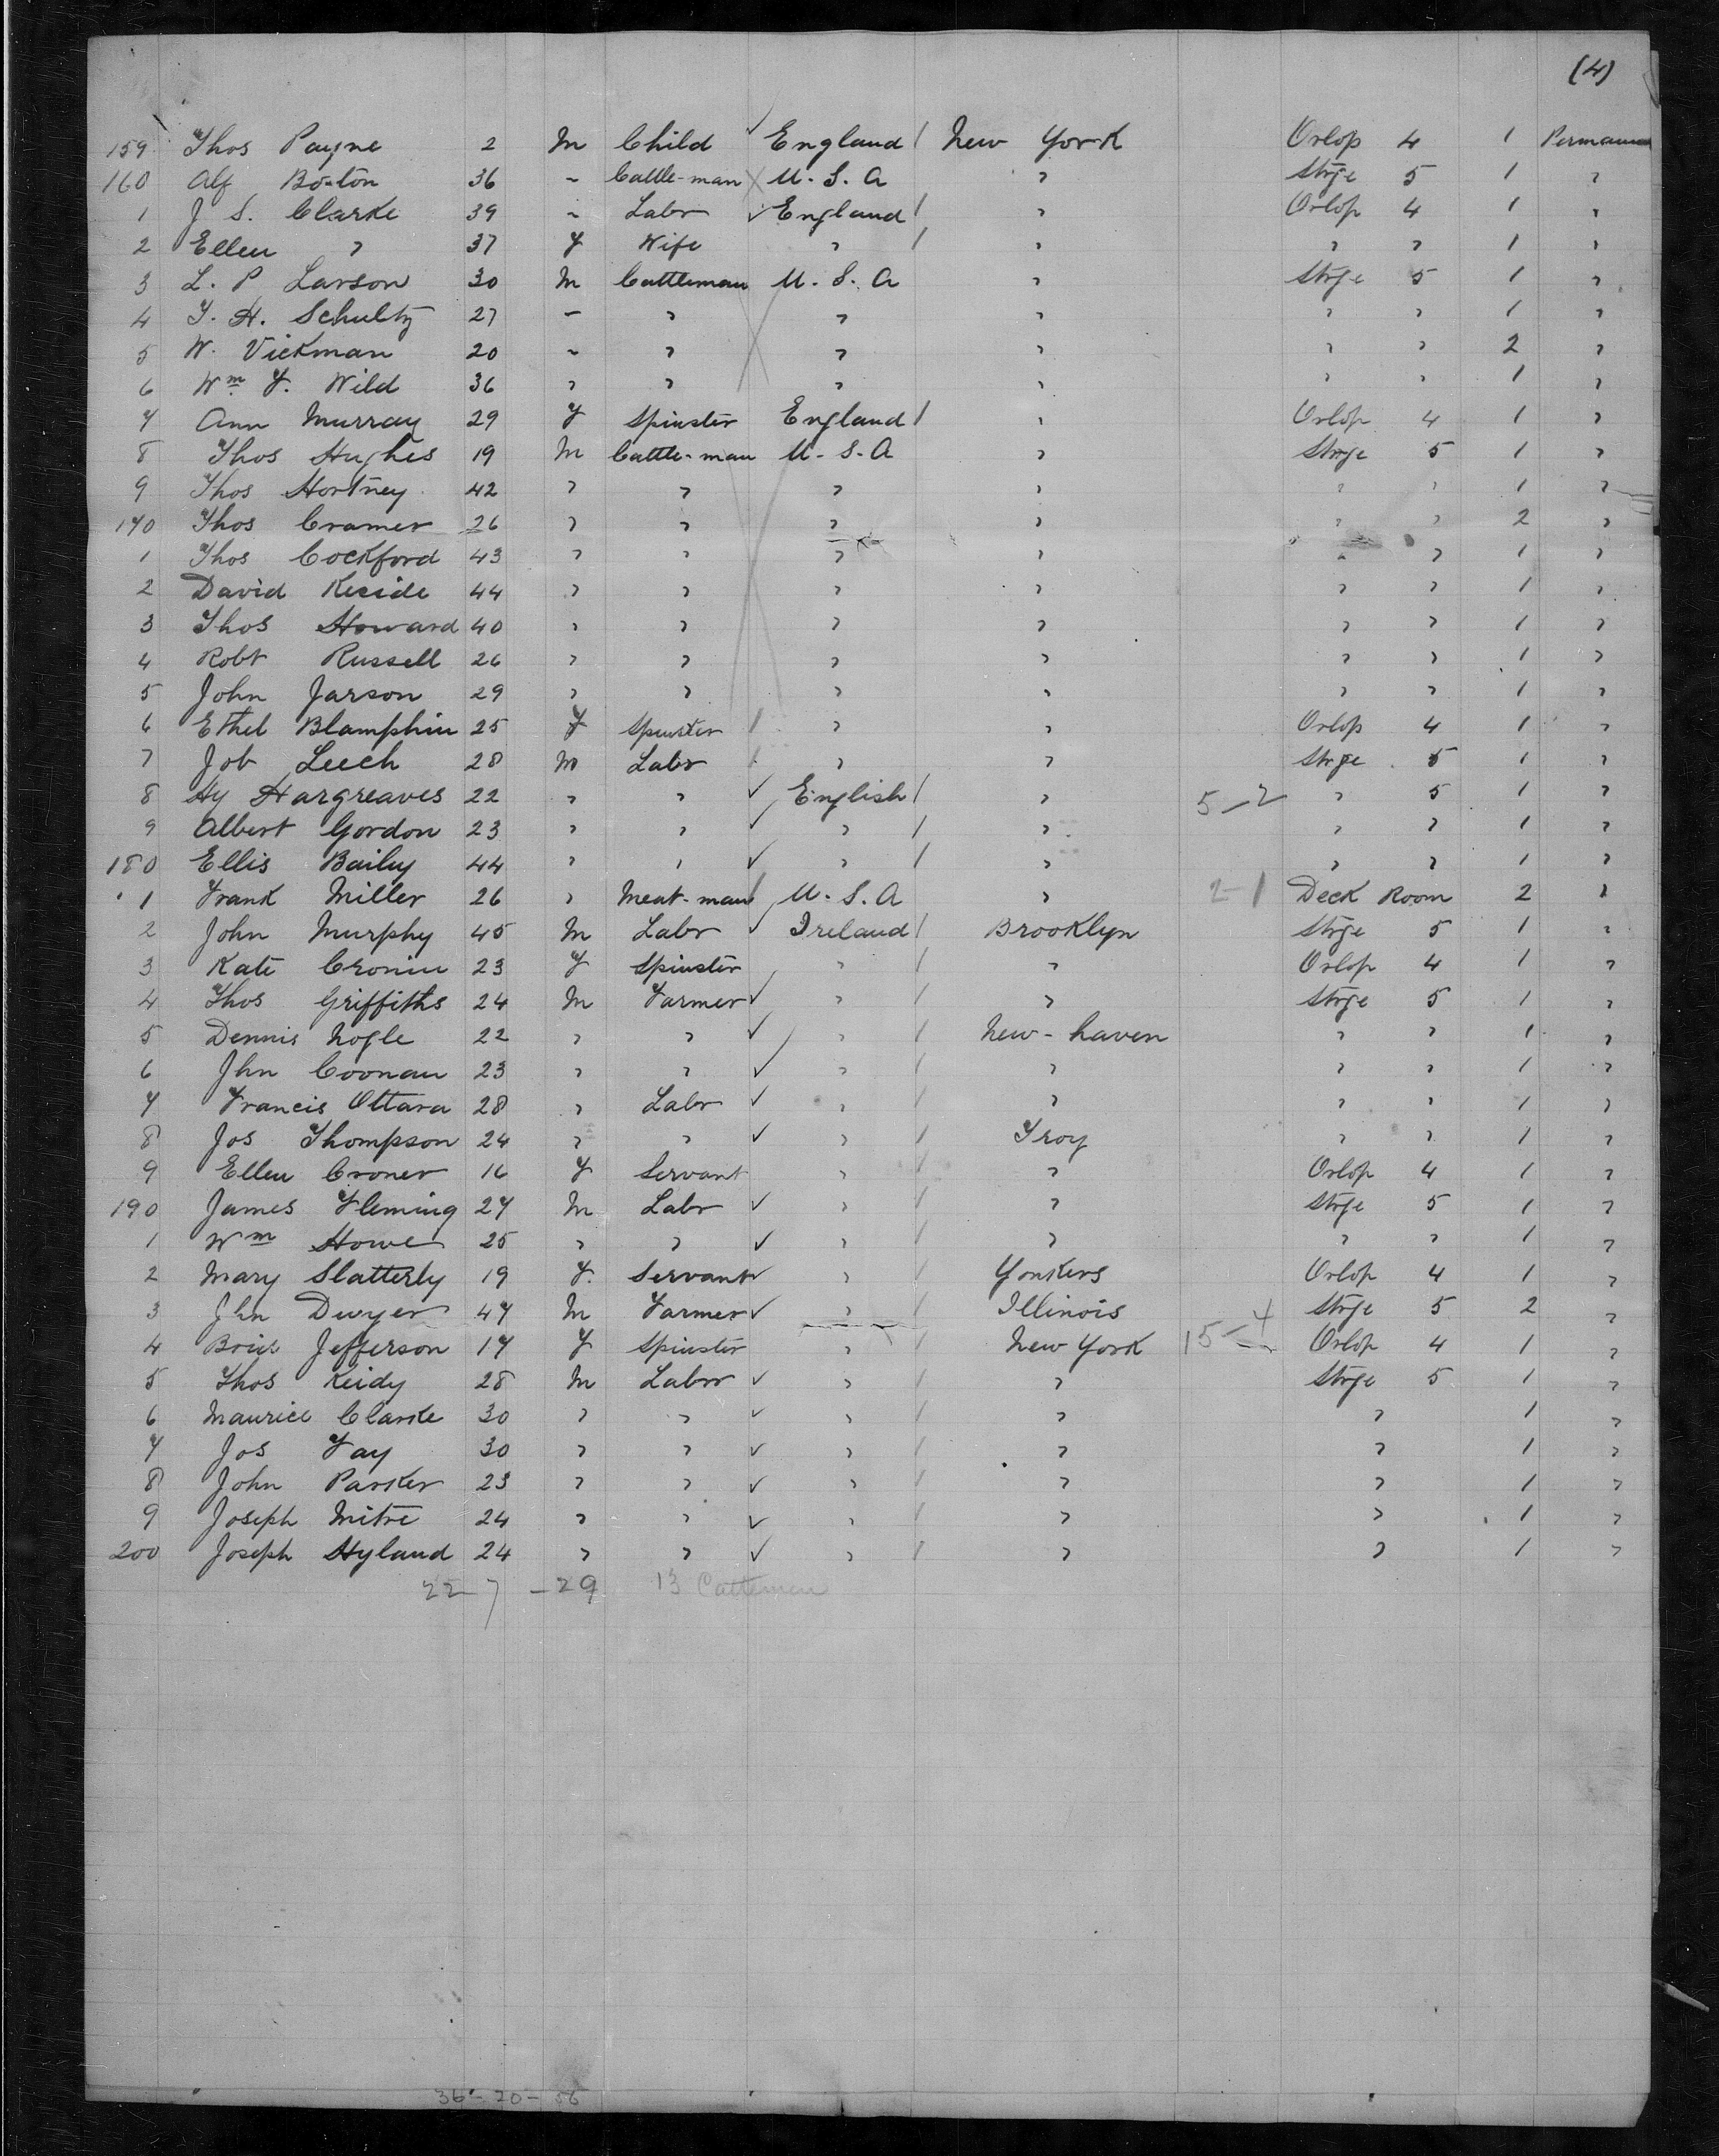 (4)
159 Thos Payne 2 M Child England New York Orlop 4 1 Permanent
160 Alf Bolton 36 " Cattle-man U.S.A " Strge 5 1 "
1 J S. Clarke 39 " Labr England " Orlop 4 1 "
2 Ellen " 37 F Wife " " " " 1 "
3 L. P Larson 30 M Cattleman U.S.A " Strge 5 1 "
4 T. H. Schultz 27 " " " " " " 1 "
5 W. Vickman 20 " " " " " " 2 "
6 Wm F. Wild 36 " " " " " " 1 "
7 Ann Murray 29 F Spinster England " Orlop 4 1 "
8 Thos Hughes 19 M Cattle-man U.S.A " Strge 5 1 "
9 Thos Hortney 42 " " " " " " 1 "
170 Thos Cramer 26 " " " " " " 2 "
1 Thos Cockford 43 " " " " " " 1 "
2 David Keside 44 " " " " " " 1 "
3 Thos Howard 40 " " " " " " 1 "
4 Robt Russell 26 " " " " " " 1 "
5 John Jarson 29 " " " " " " 1 "
6 Ethel Blamphin 25 F Spinster " " Orlop 4 1 "
7 Job Leech 28 M Labr " " Strge 5 1 "
8 Hy Hargreaves 22 " " English " 5-2 " 5 1 "
9 Albert Gordon 23 " " " " " " 1 "
180 Ellis Baily 44 " " " " " " 1 "
1 Frank Miller 26 " Meat-man U.S.A " 2-1 Deck Room 2 "
2 John Murphy 45 M Labr Ireland Brooklyn Strge 5 1 "
3 Kate Cronin 23 F Spinster " " Orlop 4 1 "
4 Thos Griffiths 24 M Farmer " " Strge 5 1 "
5 Dennis Nogle 22 " " " New-haven " " 1 "
6 Jhn Coonan 23 " " " " " " 1 "
7 Francis Ottara 28 " Labr " " " " 1 "
8 Jos Thompson 24 " " " Troy " " 1 "
9 Ellen Croner 16 F Servant " " Orlop 4 1 "
190 James Fleming 27 M Labr " " Strge 5 1 "
1 Wm Howe 25 " " " " " " 1 "
2 Mary Slatterly 19 F. Servant " Yonkers Orlop 4 1 "
3 Jhn Dwyer 47 M Farmer " Illinois Strge 5 2 "
4 Jefferson 17 F Spinster " New York 15-4 Orlop 4 1 "
5 Thos Keidy 28 M Labr " " Strge 5 1 "
6 Maurice Clarke 30 " " " " " 1 "
7 Jos Fay 30 " " " " " 1 "
8 John Parker 23 " " " " " 1 "
9 Joseph Mitre 24 " " " " " 1 "
200 Joseph Hyland 24 " " " " " 1 "
22 7 -29 13 Cattlemen
36-20-56